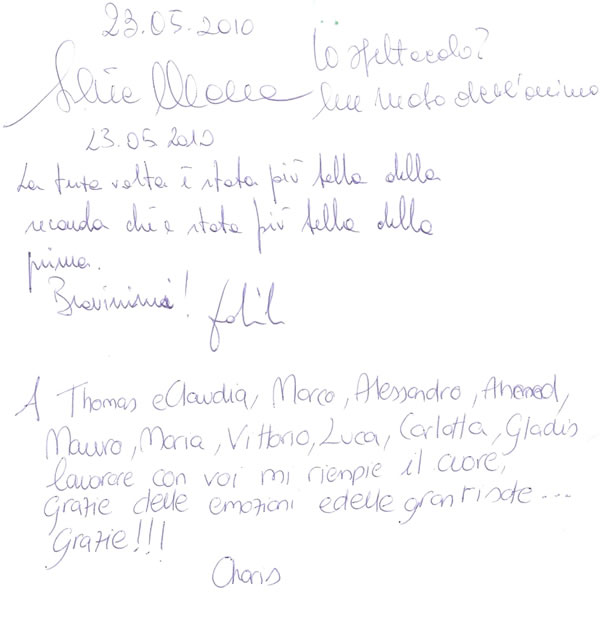 23.05.2010
Lo spettacolo?
Un moto dell'animo
23.05.2010
La terza volta è stata più bella della
seconda che è stata più bella della
prima.
Bravissimi!
A Thomas e Claudia, Marco, Alessandro, Ahmed,
Mauro, Maria, Vittorio, Luca, Carlotta, Gladis
lavorare con voi mi riempie il cuore,
grazie delle emozioni e delle gran risate...
Grazie!!!
Charis